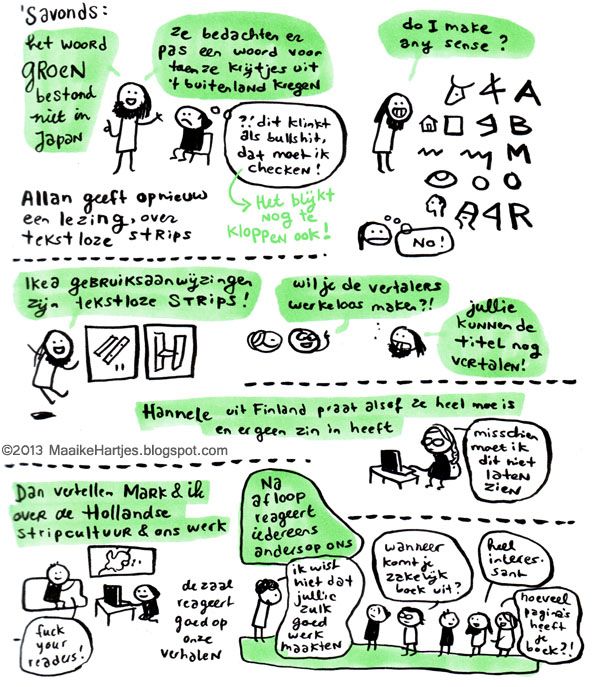 'Savonds:
het woord
GROEN
bestond
niet in
Japan
ze bedachten er
pas een woord voor
toen ze krijtjes uit
't buitenland kregen
?! dit klinkt
als bullshit,
dat moet ik
checken!
Het blijkt
nog te
kloppen ook!
Allan geeft opnieuw
een lezing, over
tekstloze strips
do I make
any sense?
A
B
M
O
R
No!
Ikea gebruiksaanwijzingen
zijn tekstloze strips!
wil je de vertalers
werkeloos maken?!
jullie
kunnen de
titel nog
vertalen!
Hannele uit Finland praat alsof ze heel moe is
en er geen zin in heeft
misschien
moet ik
dit niet
laten
zien
©2013 MaaikeHartjes.blogspot.com
Dan vertellen Mark & ik
over de Hollandse
stripcultuur & ons werk
fuck
your
readers!
de zaal
reageert
goed op
onze
verhalen
Na
afloop
reageert
iedereen
anders op ons
ik wist
niet dat
jullie
zulk
goed
werk
maakten
wanneer
komt je
zakelijk
boek uit?
heel
interes-
sant
hoeveel
pagina's
heeft
je
boek?!